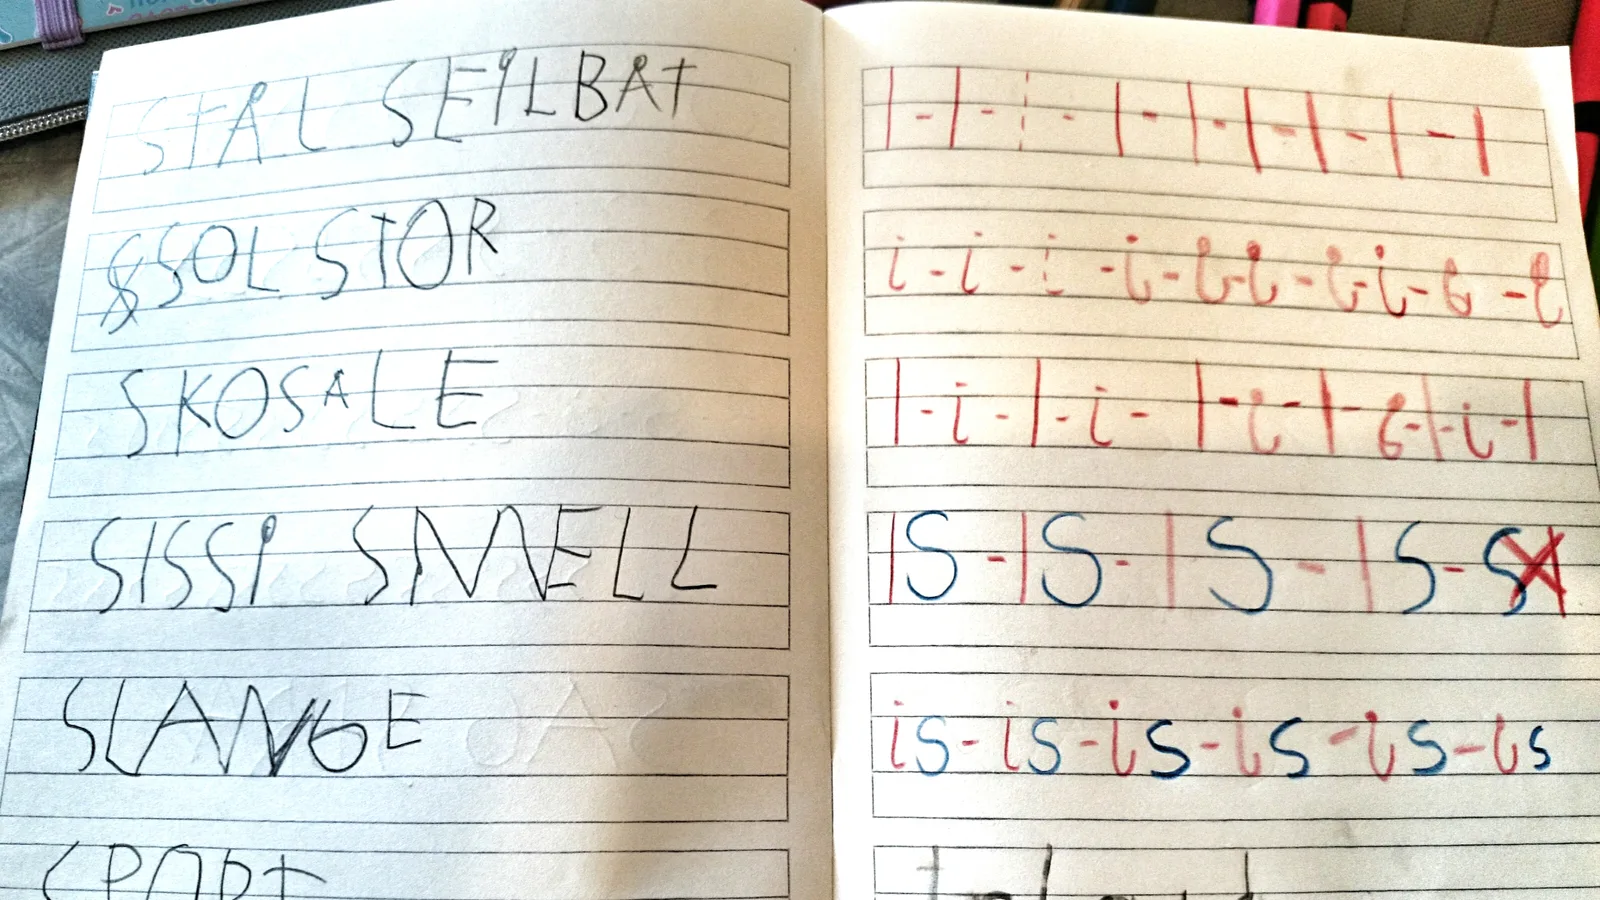 STÅL SEILBÅT
SOL STOR
SKOSÅLE
SISSI SMELL
SLANGE
SPORT
I - I - I - I - I - I - I - I - I
i - i - i - i - i - i - i - i - i - i
I - i - I - i - I - i - I - i - I - i - I
IS - IS - IS - IS - S
is - is - is - is - is - is